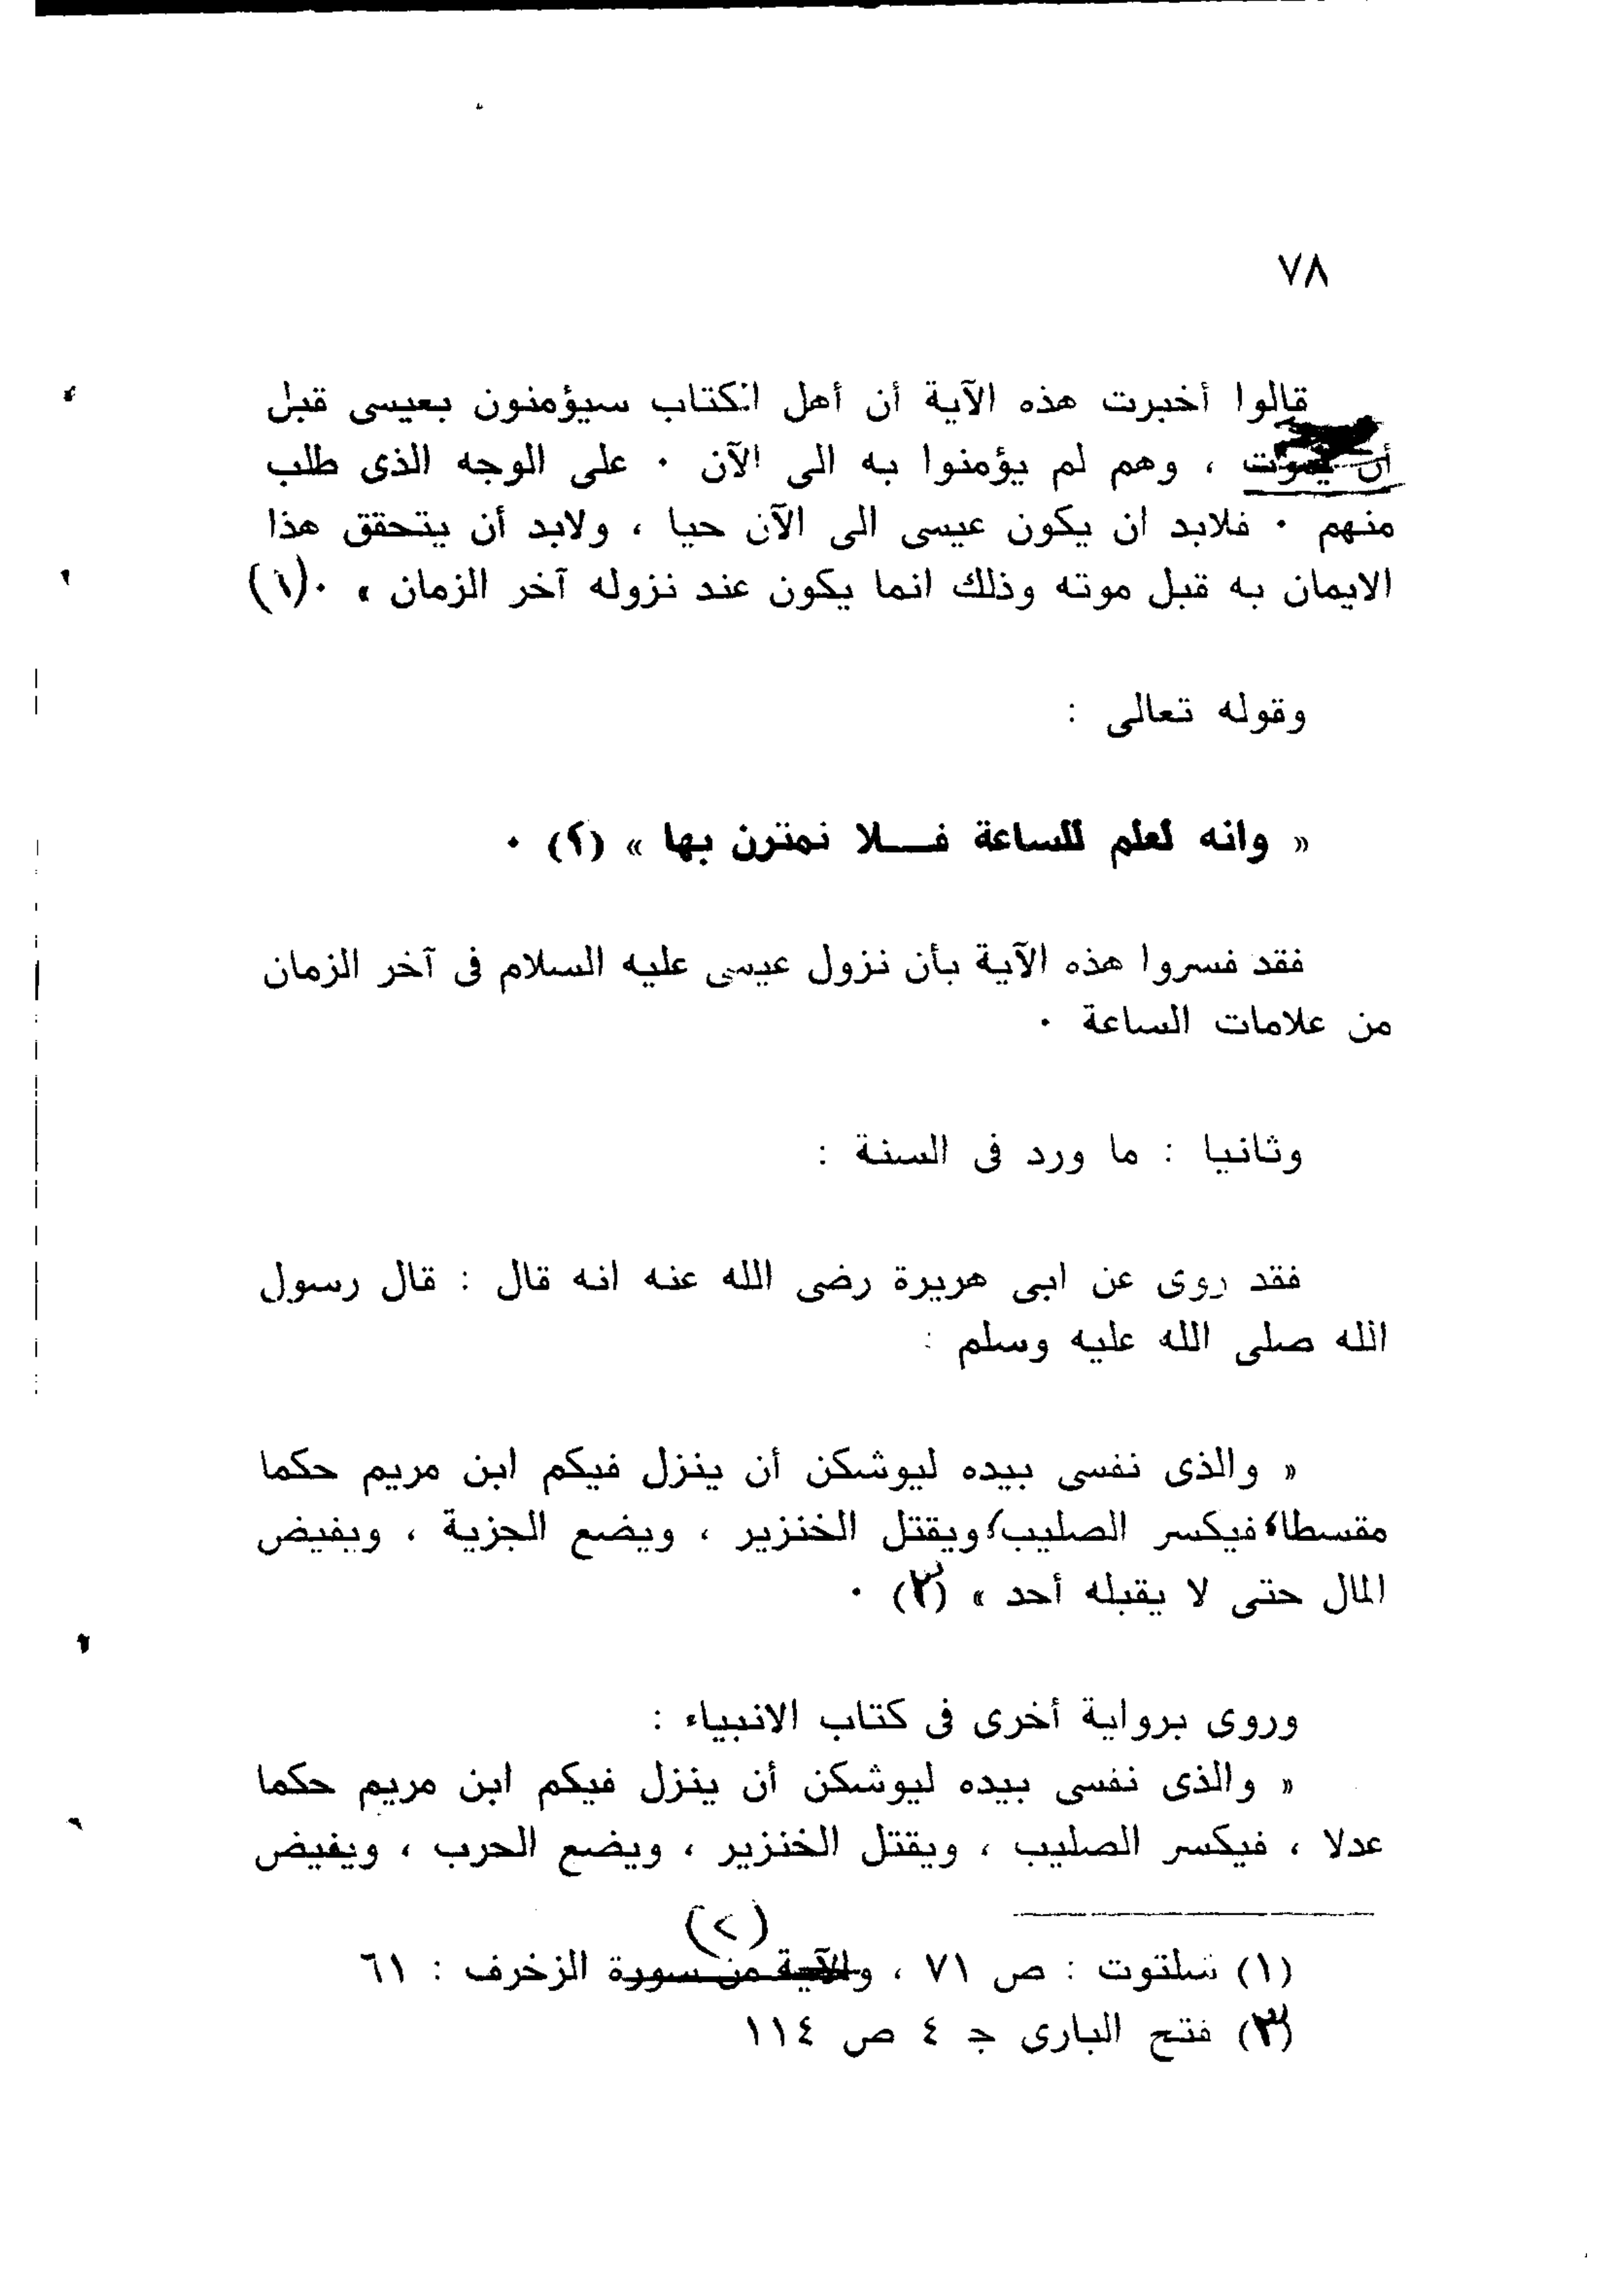 ٧٨
قالوا أخبرت هذه الآية أن أهل الكتاب سيؤمنون بعيسى قبل
أن يموت ، وهم لم يؤمنوا به الى الآن ٠ على الوجه الذى طلب
منهم ٠ فلابد ان يكون عيسى الى الآن حيا ، ولابد أن يتحقق هذا
الايمان به قبل موته وذلك انما يكون عند نزوله آخر الزمان » ٠(١)
وقوله تعالى :
« وانه لعلم للساعة فــلا تمترن بها » (٢) ٠
فقد فسروا هذه الآية بأن نزول عيسى عليه السلام فى آخر الزمان
من علامات الساعة ٠
وثانيا : ما ورد فى السنة :
فقد روى عن ابى هريرة رضى الله عنه انه قال : قال رسول
الله صلى الله عليه وسلم :
« والذى نفسى بيده ليوشكن أن ينزل فيكم ابن مريم حكما
مقسطا، فيكسر الصليب، ويقتل الخنزير ، ويضع الجزية ، ويفيض
المال حتى لا يقبله أحد » (٣) ٠
وروى برواية أخرى فى كتاب الانبياء :
« والذى نفسى بيده ليوشكن أن ينزل فيكم ابن مريم حكما
عدلا ، فيكسر الصليب ، ويقتل الخنزير ، ويضع الحرب ، ويفيض
(٢)
(١) شلتوت : ص ٧١ ، والآية من سورة الزخرف : ٦١
(٣) فتح البارى ج ٤ ص ١١٤